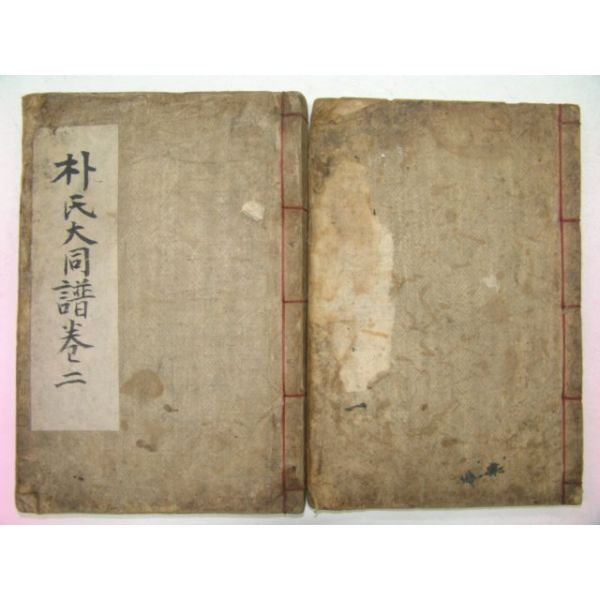 朴氏大同譜卷二
一